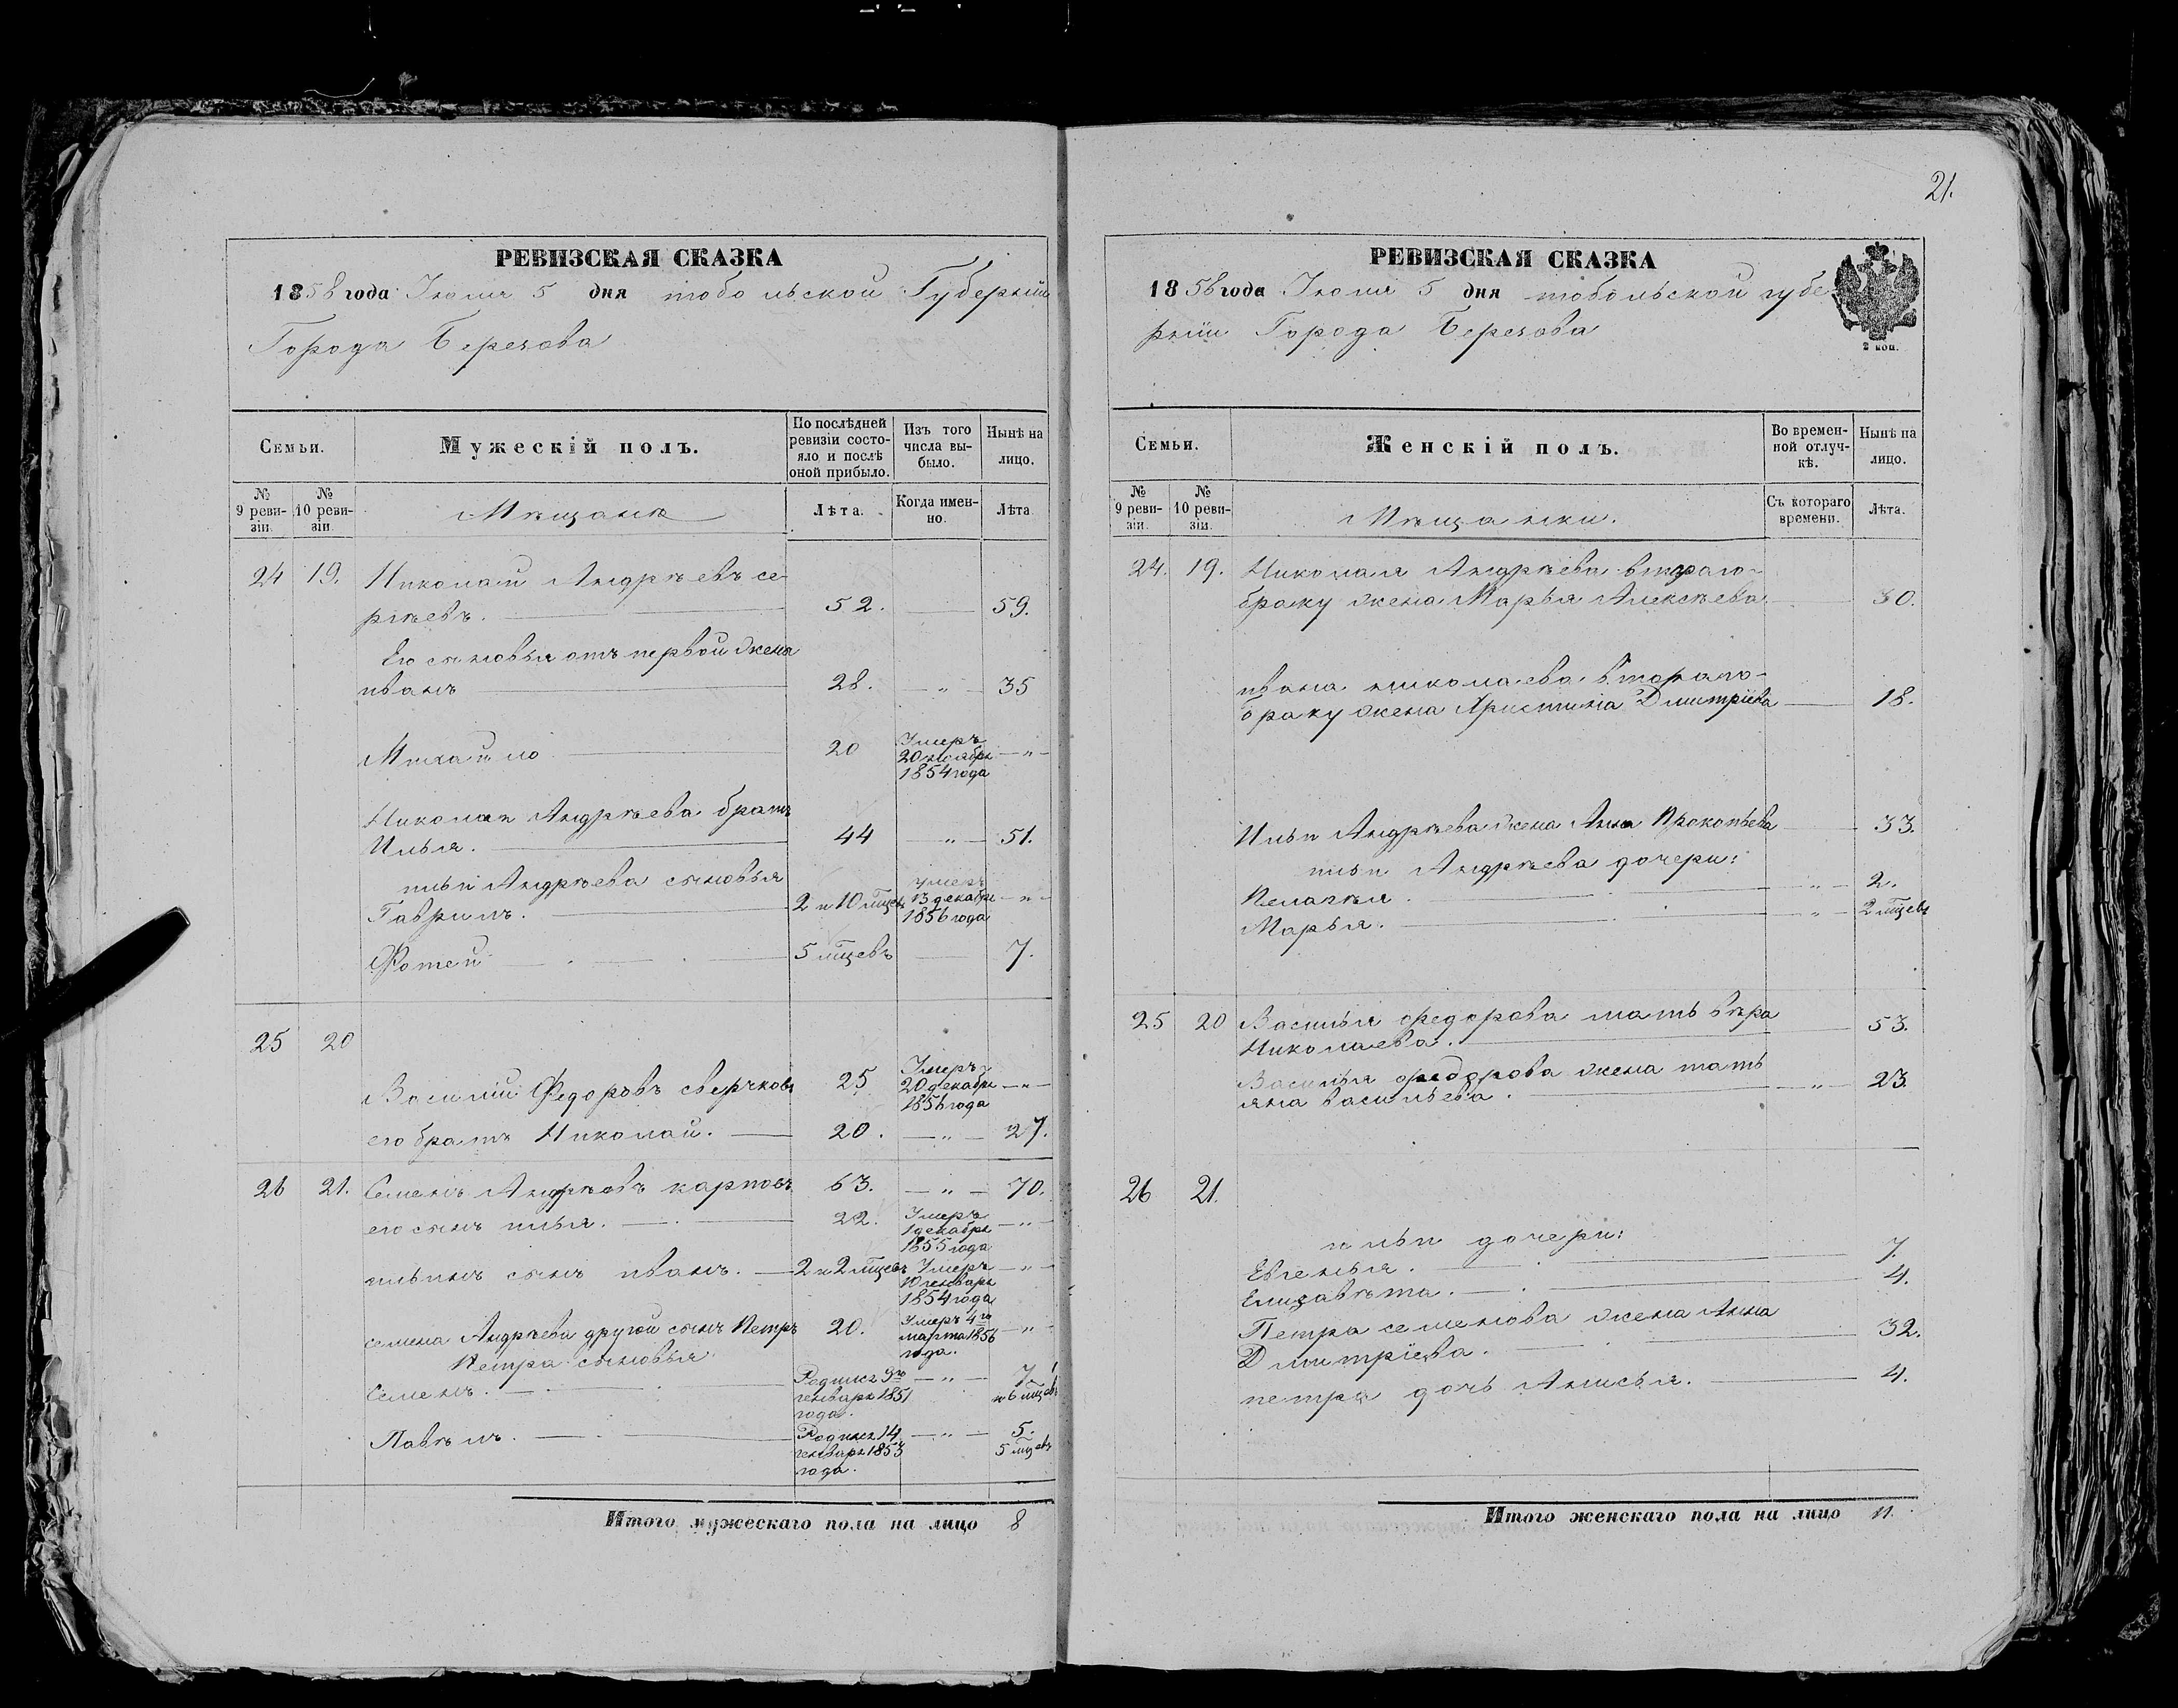 21.
РЕВИЗСКАЯ СКАЗКА
1858 года Июля 5 дня тобольской Губерніи
Города Березова
Семьи.
Мужескій полъ.
По послѣдней ревизіи состояло и послѣ оной прибыло.
Изъ того числа выбыло.
Нынѣ на лицо.
№ 9 ревизіи.
№ 10 ревизіи.
Мѣщане
Лѣта.
Когда именно.
Лѣта
24 19. Николай Андрѣевъ се-
ргѣевъ. 52. 59.
Его сыновья отъ первой жены
иванъ 28. " 35
Михайло 20 Умеръ 20 ноября 1854 года "
Николая Андрѣева братъ
Илья. 44 " 51.
ильи Андрѣева сыновья
Гаврилъ. 2 и 10 мцевъ умеръ 13 декабря 1856 года "
Фотей 5 мцевъ 7.
25 20
Василій Федоровъ сверчковъ 25 Умеръ 20 декабря 1856 года "
его братъ Николай. 20. " 27.
26 21. Семенъ Андрѣевъ карповъ 63. " 70.
его сынъ илья. 22. Умеръ 1 декабря 1855 года "
ильинъ сынъ иванъ. 2 и 2 мцевъ Умеръ 10 генваря 1854 года "
семена Андрѣева другой сынъ Петръ 20. Умеръ 4го марта 1856 года. "
Петра сыновья
Семенъ. Родился 9го генваря 1851 года. " 7 и 6 мцевъ
Павѣлъ. Родился 14 генваря 1853 года. " 5. 5 мцевъ
Итого мужескаго пола на лицо 8
РЕВИЗСКАЯ СКАЗКА
1858 года Июля 5 дня тобольской губе-
рніи Города Березова
2 коп.
Семьи.
Женскій полъ.
Во временной отлучкѣ.
Нынѣ на лицо.
№ 9 ревизіи.
№ 10 ревизіи.
Мѣщанки.
Съ котораго времени.
Лѣта.
24. 19. Николая Андрѣева втораго-
браку жена Марья Алексѣева 30.
ивана николаева втораго-
браку жена Христинія Дмитріева 18.
Ильи Андрѣева жена Анна Прокопьева 33.
ильи Андрѣева дочери:
Пелагѣя. " 2.
Марья. " 2 мцевъ
25 20 Василья федорова мать вѣра
Николаева. 53.
Василья федорова жена тать
яна васильева. " 23.
26 21.
ильи дочери:
Евгенья. 7.
Елизавѣта. 4.
Петра семенова жена Анна
Дмитріева. 32.
петра дочь Анисья. 4.
Итого женскаго пола на лицо 11.